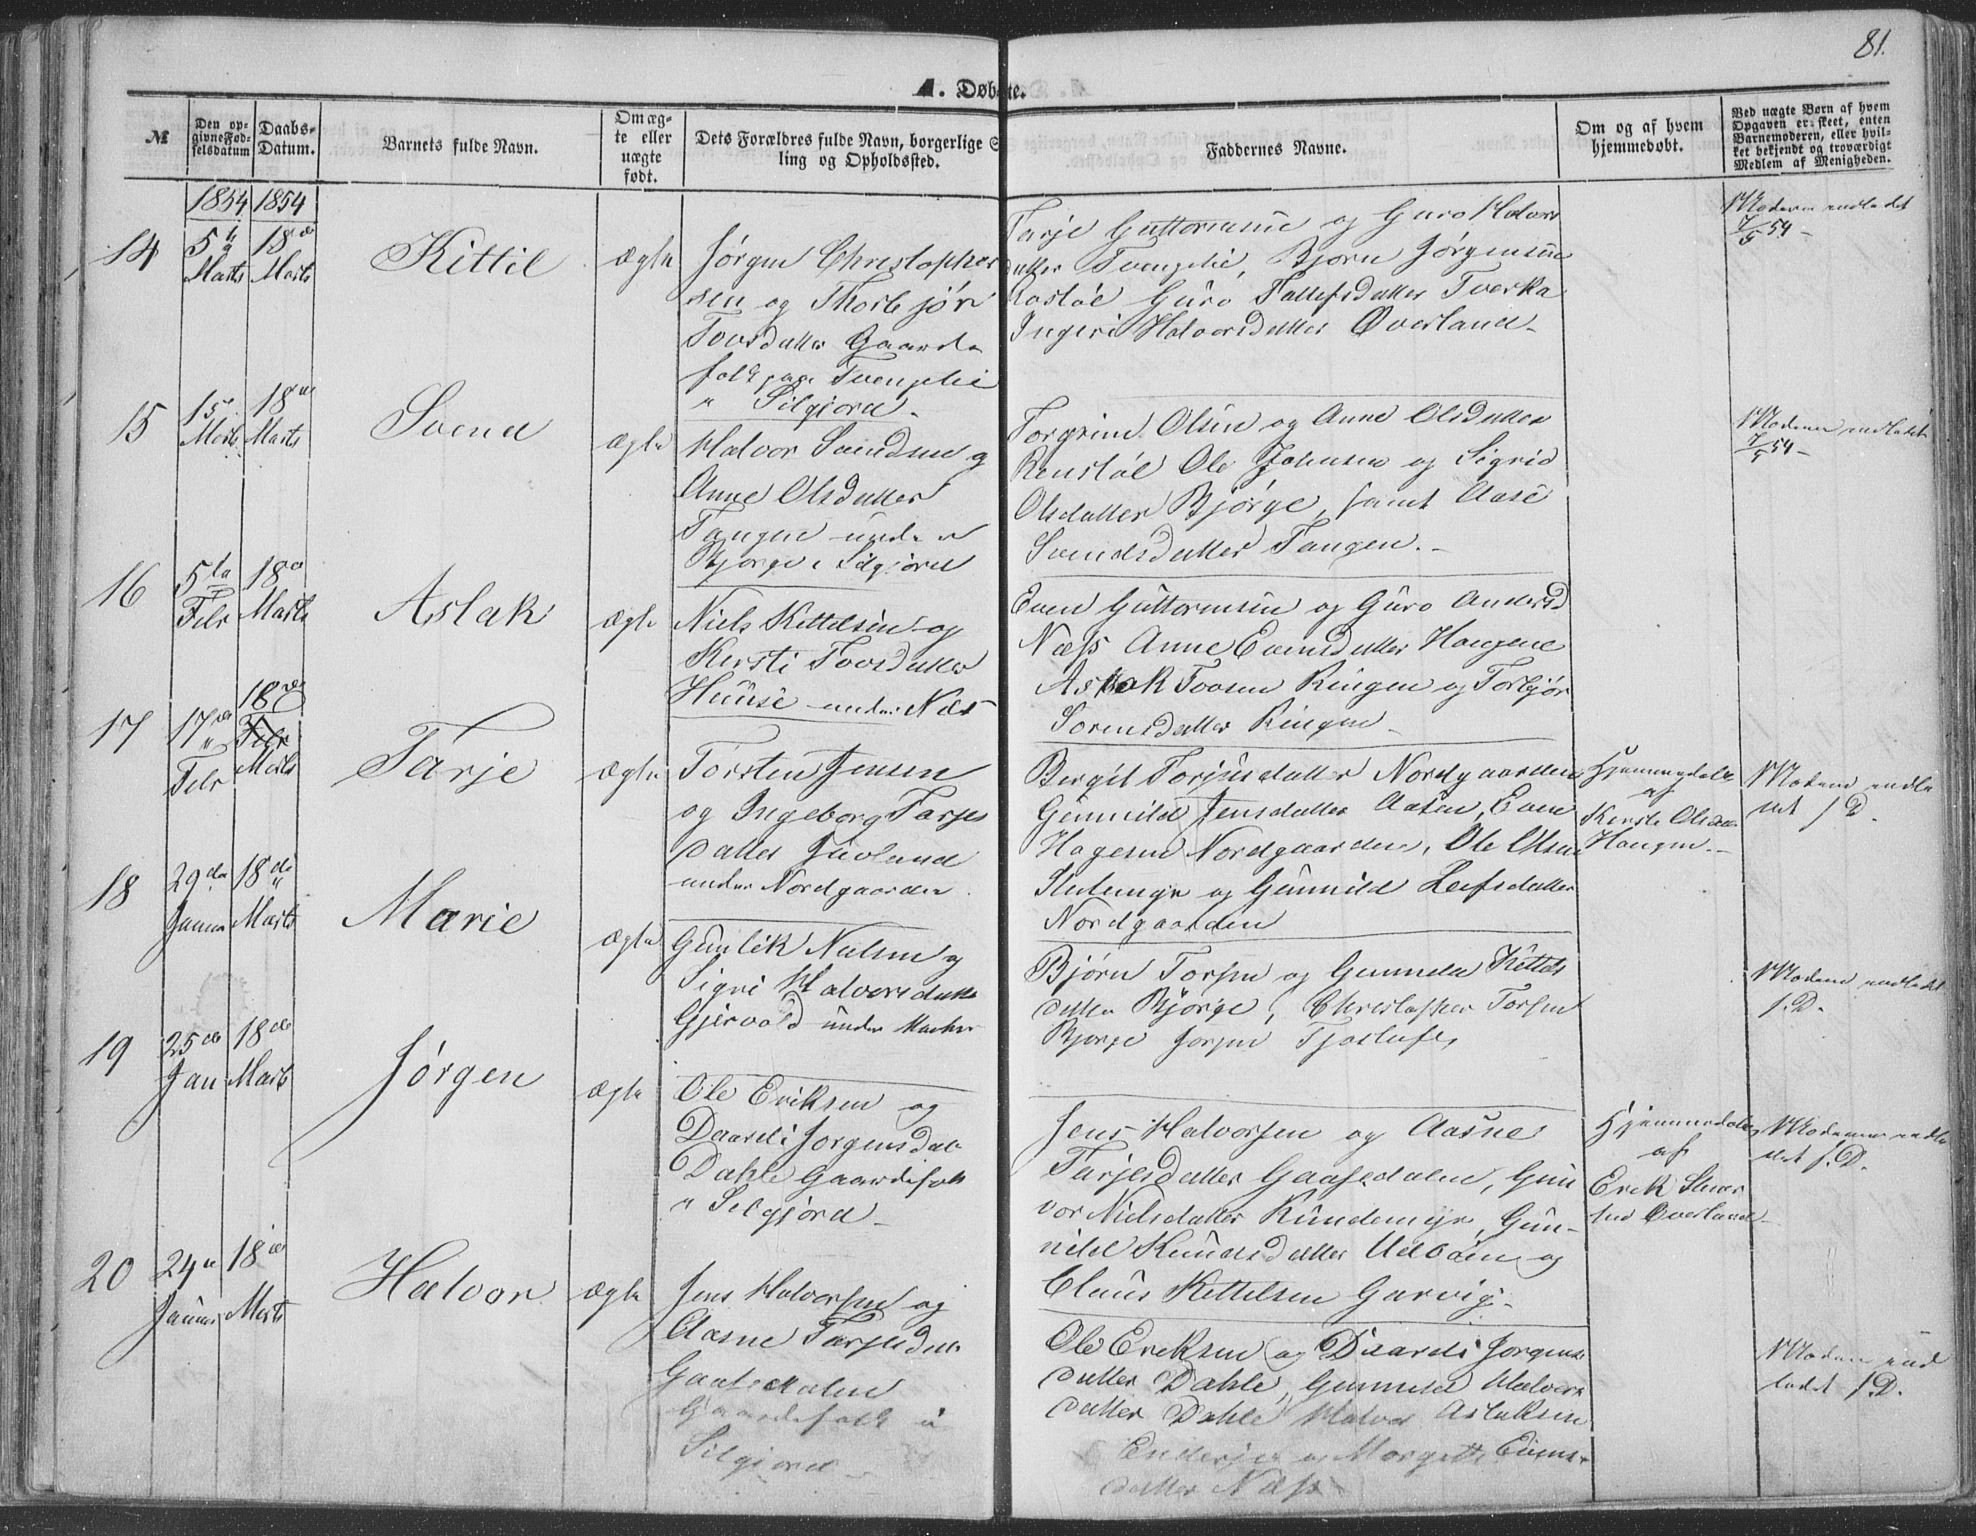 81.
A. Døbte.
№
Den op-
givne Fød-
selsdatum
Daabs-
Datum.
Barnets fulde Navn.
Om æg-
te eller
uægte
født.
Dets Forældres fulde Navn, borgerlige S
ling og Opholdssted.
Faddernes Navne.
Om og af hvem
hjemmedøbt.
Ved uægte Børn af hvem
Opgaven er skeet, enten
Barnemoderen, eller hvil-
ket bekjendt og troværdigt
Medlem af Menigheden.
1854 1854
14
5te
Marts
18de
Marts
Kittil
ægte
Jørgen Christopher
sen og Thorbjør
Tovsdatter Gaards
folk paa
" Silgjord.
Tarje Guttormsen og Guro Halvors
datter Bjørn Jørgensen
Guro Tallefsdatter
Ingeri Halvorsdatter Øverland.
Moderen indledet
7/5 54
15
15
Marts
18de
Marts
Svend
ægte
Halvor Svendsen og
Anne Olsdatter
Tangen under
Bjørge i Silgjord
Torgrim Olsen og Anne Olsdatter
Ole Johnsen og Sigrid
Olsdatter Bjørge, samt Aase
Svendsdatter Tangen.
Moderen indledet
7/5 54
16
5te
Febr
18de
Marts
Aslak
ægte
Niels Kittelsen og
Kersti Tovsdatter
Huuse under Næs
Even Guttormsen og Guro Andersd
Næss Anne Evensdatter Haugene
Aslak Tovsen Ringen og Torbjør
Sørensdatter Ringen
17
17de
Febr
18de
Febr
Marts
Tarje
ægte
Torsten Jensen
og Ingeborg Tarjes
datter Juvland
under Nordgaarden
Bergit Torjusdatter Nordgaarden
Gunnild Jensdatter Aasen, Even
Hagesen Nordgaarden, Ole Olsen
og Gunnild Leifsdatter
Nordgaarden
Hjemmedøbt
af
Kersti Olsd
Haugen.
Moderen indle
det s. D.
18
29de
Januar
18de
Marts
Marie
ægte
Gunlek Nielsen og
Sigri Halvorsdatter
Gjervold under
Bjørn Torsen og Gunnild Kittels
datter Bjørge, Christopher Torsen
Bjørge
Moderen indledet
s. D.
19
25de
Jan
18de
Marts
Jørgen
ægte
Ole Eriksen og
Daardi Jørgensdat
Dahle Gaardsfolk
i Silgjord
Jens Halvorsen og Aasne
Tarjesdatter Gaasedalen, Gun
vor Nielsdatter Rundemyr, Gun-
nild Knudsdatter Utbøen og
Claus Kettelsen Garvig.
Hjemmedøbt
af
Erik
Øverland
Moderen indle
det s. D.
20
24de
Januar
18de
Marts
Halvor
ægte
Jens Halvorsen og
Aasne Tarjesdatt
Gaasedalen
Gaardsfolk i
Silgjord
Ole Eriksen og Daardi Jørgens
datter Dahle, Gunnild Halvors
datter Dahle Halvor Aslaksen
og Margethe Evens-
datter Næss
Moderen ind
ledet s. D.